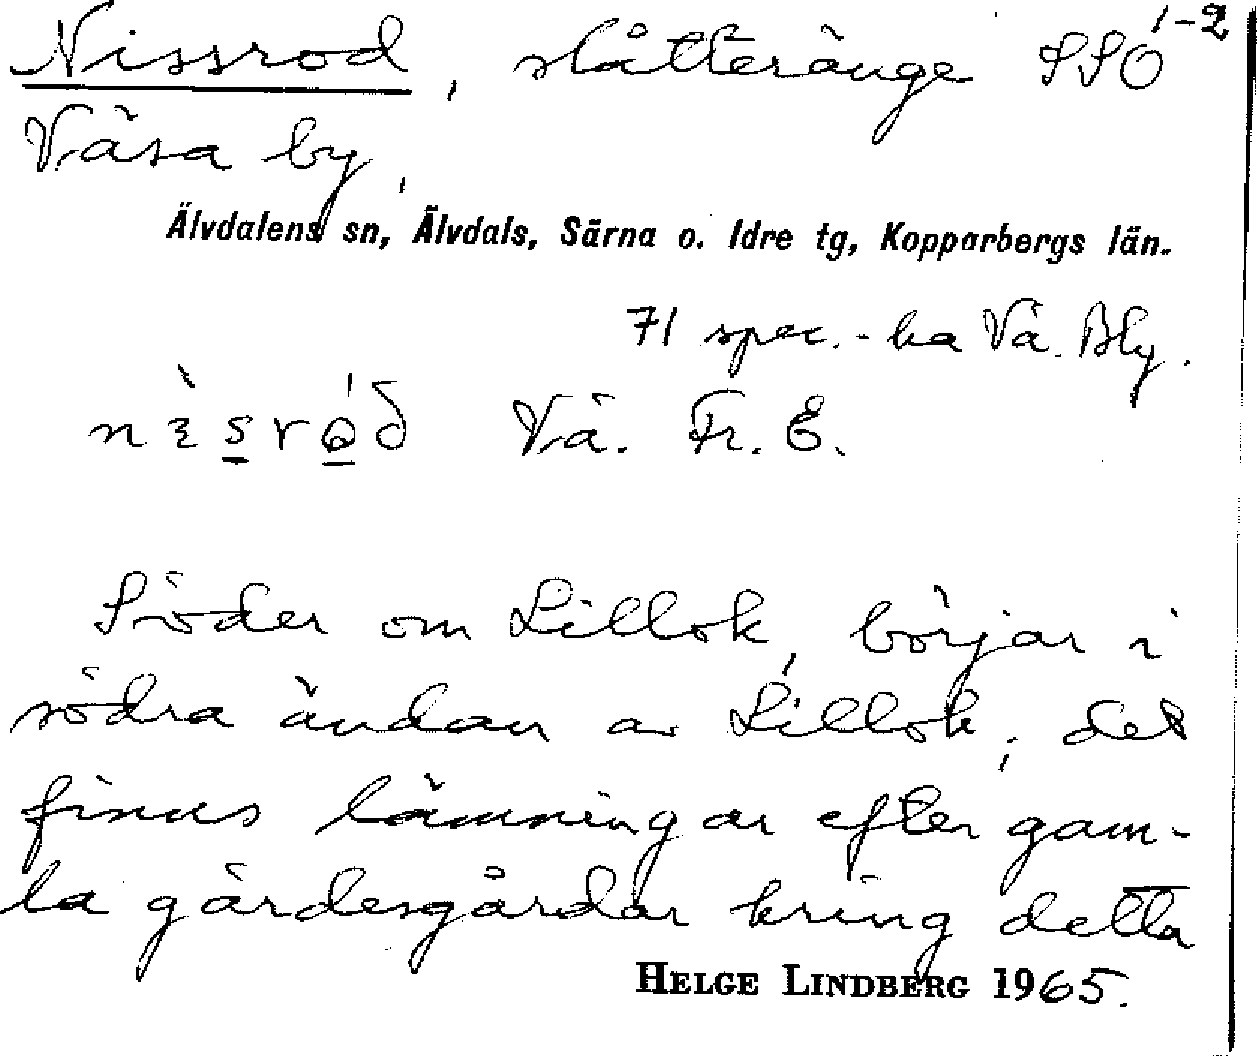 1-2
Nissrod, slåtteränge SSO
Väsa by,
Älvdalens sn, Älvdals, Särna o. Idre tg, Kopparbergs län.
71 spec.-ka Vä. Bly.
Vä. Fr. E.
Söder om Lillok, börjar i
södra ändan av Lillok; det
finns lämningar efter gam-
la gärdesgårdar kring detta
HELGE LINDBERG 1965.